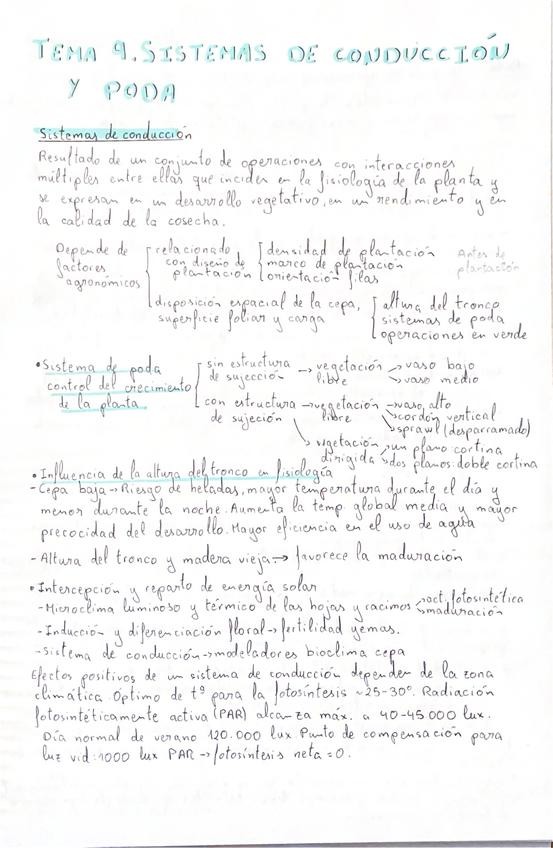 TEMA 9. SISTEMAS DE CONDUCCIÓN
Y PODA
Sistemas de conducción
Resultado de un conjunto de operaciones con interacciones
múltiples entre ellas que inciden en la fisiología de la planta y
se expresan en un desarrollo vegetativo, en un rendimiento y en
la calidad de la cosecha.
Depende de factores agronómicos
relacionado con diseño de plantación
densidad de plantación
marco de plantación
orientación filas
Antes de plantación
disposición espacial de la cepa,
superficie foliar y carga
altura del tronco
sistemas de poda
operaciones en verde
• Sistema de poda
control del crecimiento
de la planta
sin estructura de sujección → vegetación libre → vaso bajo
→ vaso medio
con estructura de sujeción → vegetación libre → vaso alto
→ cordón vertical
→ sprawl (desparramado)
vegetación dirigida → un plano cortina
→ dos planos: doble cortina
• Influencia de la altura del tronco en fisiología
- Cepa baja → Riesgo de heladas, mayor temperatura durante el día y
menor durante la noche. Aumenta la temp. global media y mayor
precocidad del desarrollo. Mayor eficiencia en el uso de agua
- Altura del tronco y madera vieja → favorece la maduración
• Intercepción y reparto de energía solar
- Microclima luminoso y térmico de las hojas y racimos → act. fotosintética
→ maduración
- Inducción y diferenciación floral → fertilidad yemas.
- sistema de conducción → modeladores bioclima cepa
Efectos positivos de un sistema de conducción dependen de la zona
climática. Óptimo de tª para la fotosíntesis ~25-30º. Radiación
fotosintéticamente activa (PAR) alcanza máx. a 40-45000 lux.
Día normal de verano 120.000 lux Punto de compensación para
luz vid: 1000 lux PAR → fotosíntesis neta = 0.